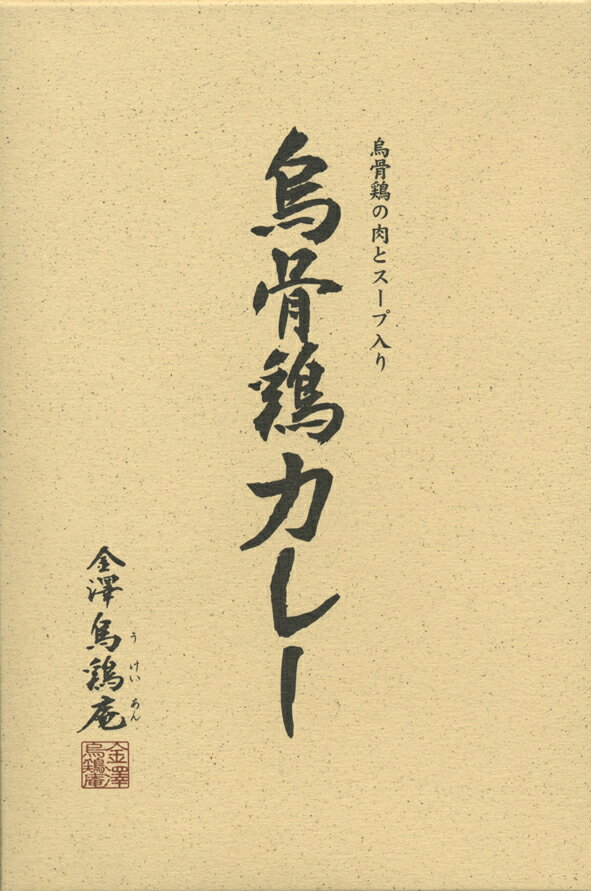 烏骨鶏の肉とスープ入り
烏骨鶏カレー
金澤烏鶏庵
うけいあん
金澤
烏鶏庵